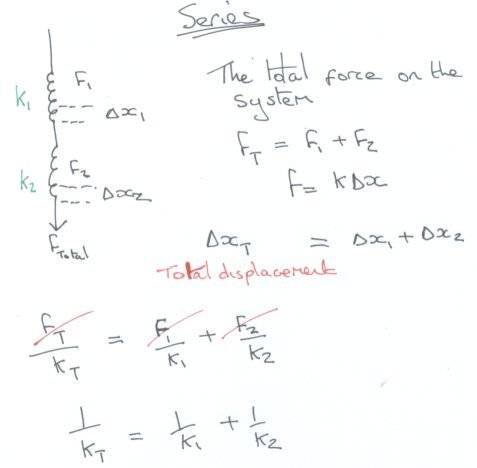 Series
F₁
k₁
Δx₁
F₂
k₂
Δx₂
F Total
The total force on the
system
F_T = F₁ + F₂
F = kΔx
Δx_T = Δx₁ + Δx₂
Total displacement
F_T/k_T = F₁/k₁ + F₂/k₂
1/k_T = 1/k₁ + 1/k₂